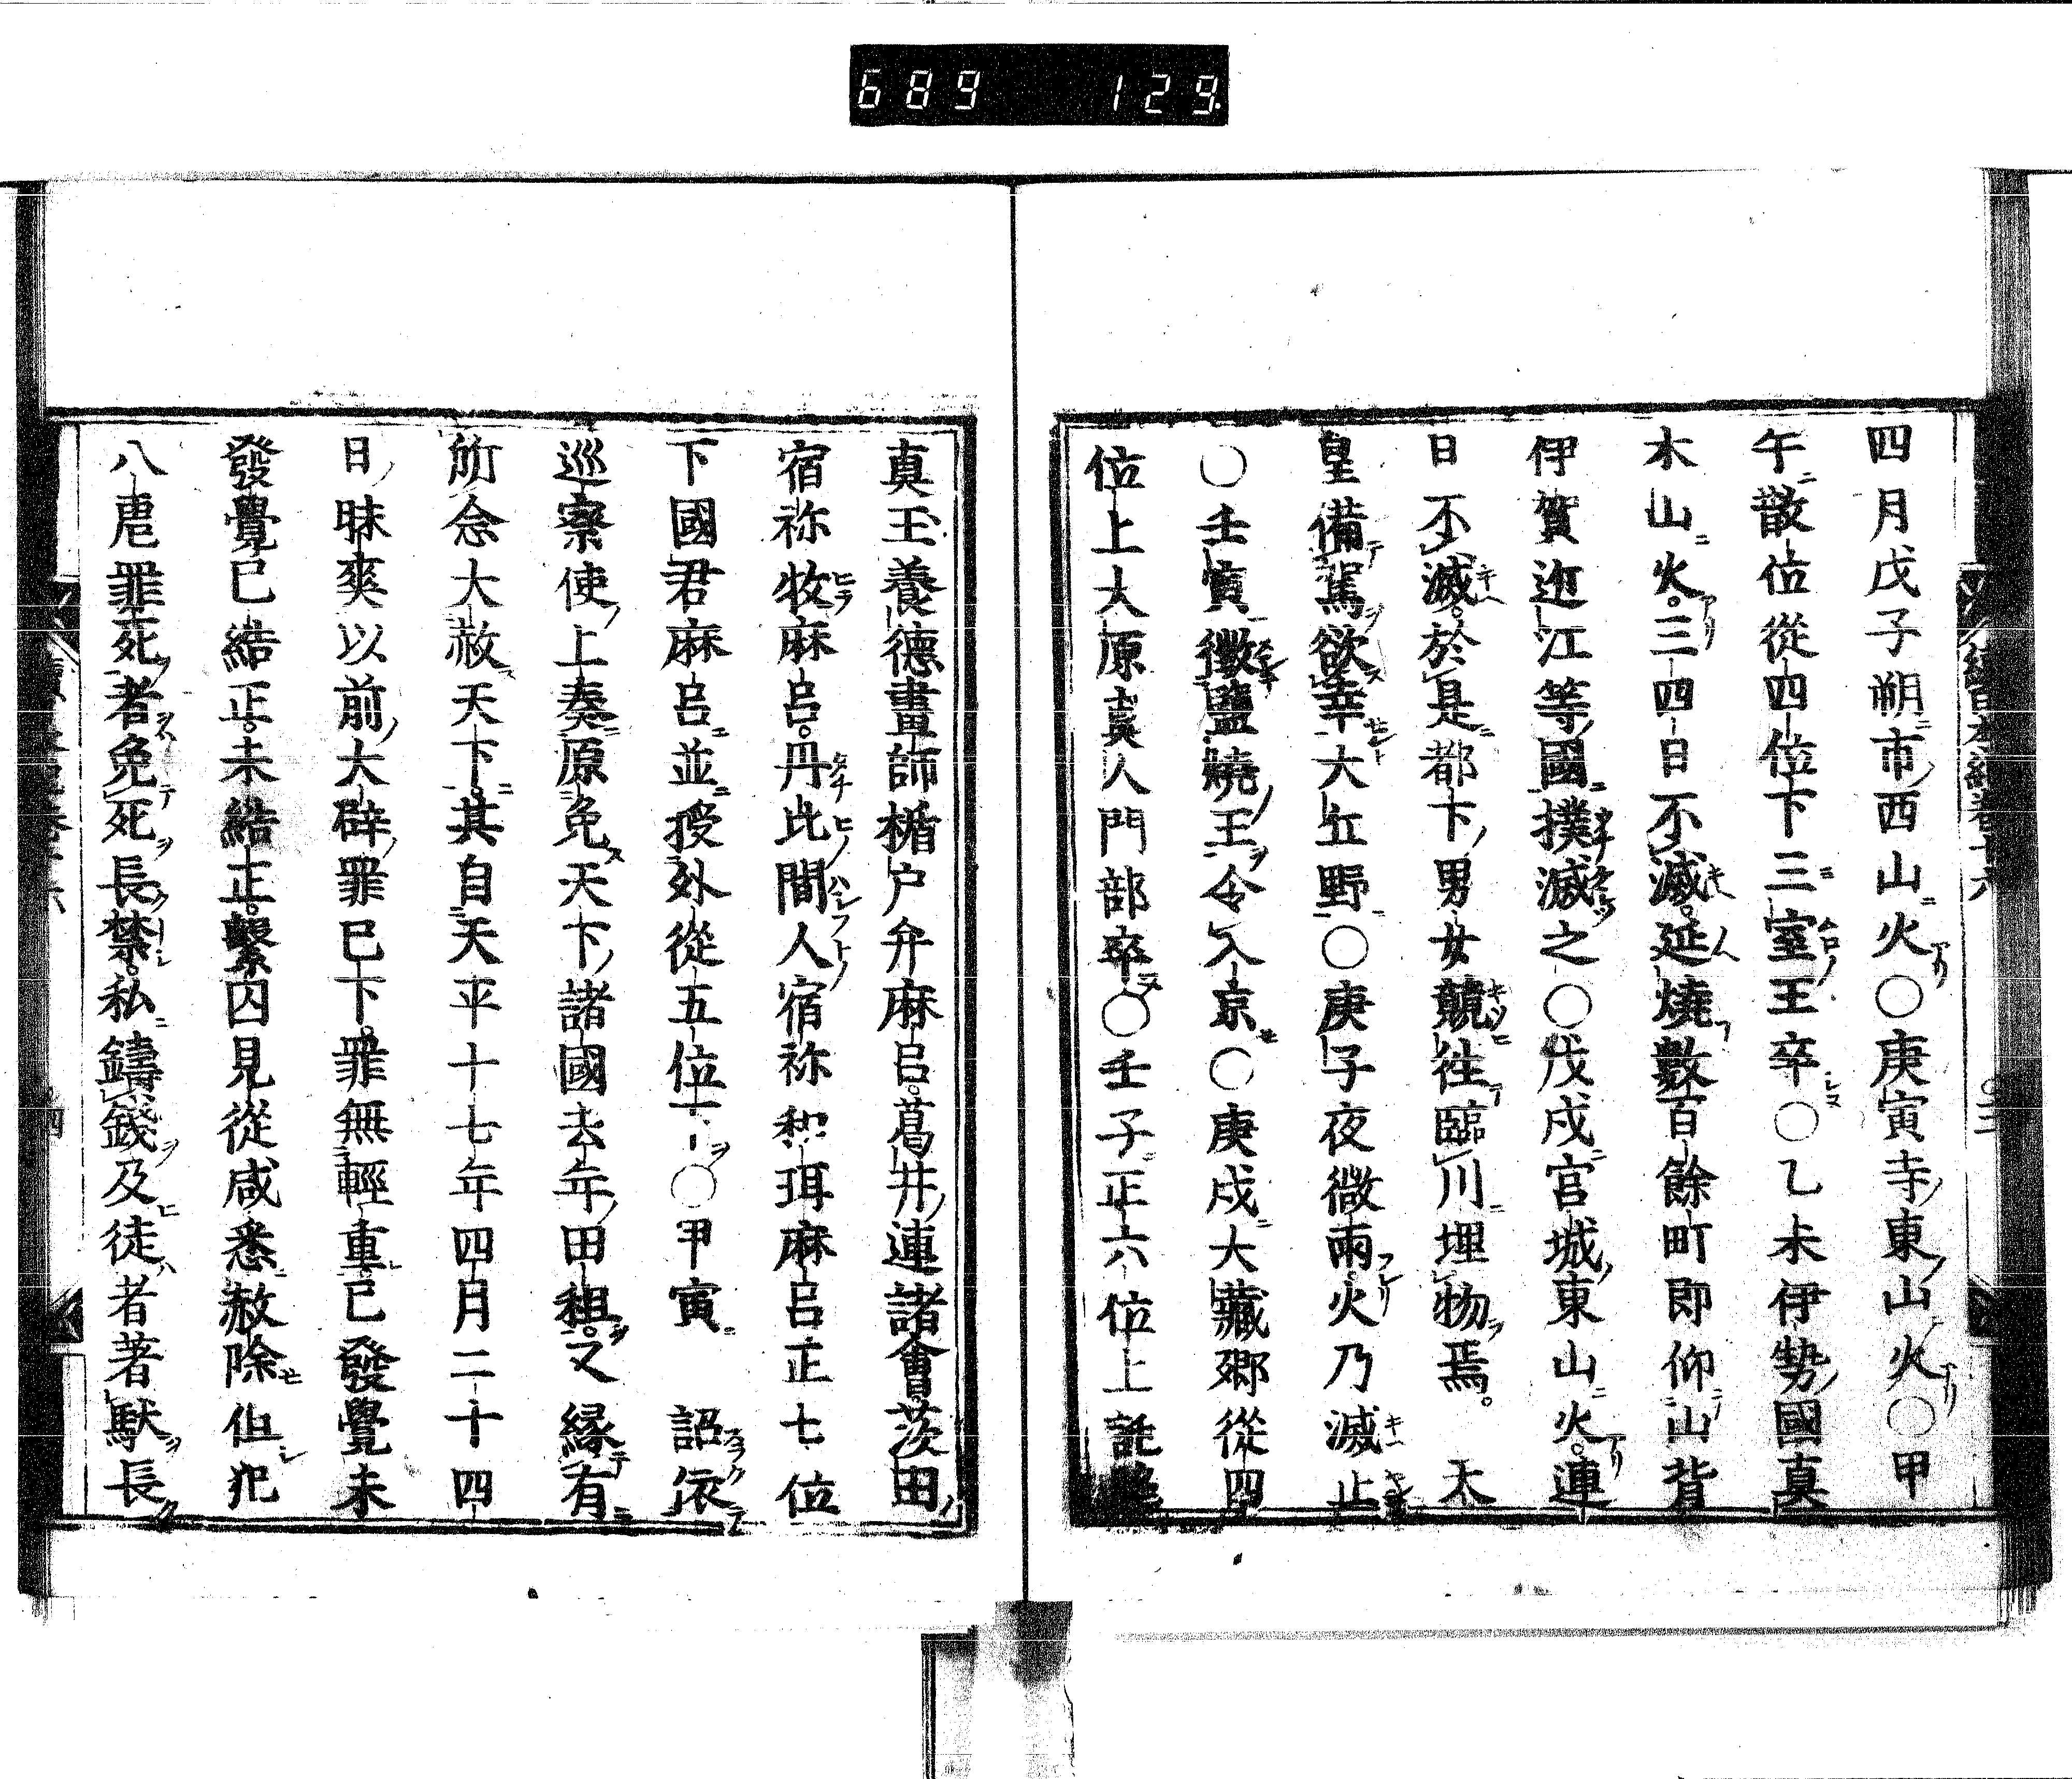 689 129
四月戊子朔市西山火○庚寅寺東山火○甲
午散位從四位下三室王卒○乙未伊勢國真
木山火三四日不滅延燒數百餘町即仰山背
伊賀近江等國撲滅之○戊戌宮城東山火連
日不滅於是都下男女競徃臨川埋物焉 天
皇備駕欲幸大丘野○庚子夜微雨火乃滅止
○壬寅徵鹽燒王令入京○庚戌大藏卿從四
位上大原真人門部卒○壬子正六位上託
真王養德畫師楯戶弁麻呂葛井連諸會茨田
宿祢牧麻呂丹比間人宿祢和珥麻呂正七位
下國君麻呂並授外從五位下○甲寅 詔依
巡察使上奏原免天下諸國去年田租又緣有
所念大赦天下其自天平十七年四月二十四
日昧爽以前大辟罪已下罪無輕重已發覺未
發覺已結正未結正繫囚見從咸悉赦除但犯
八虐罪死者免死長禁私鑄錢及徒者著馱長
續日本紀卷十六 ○三